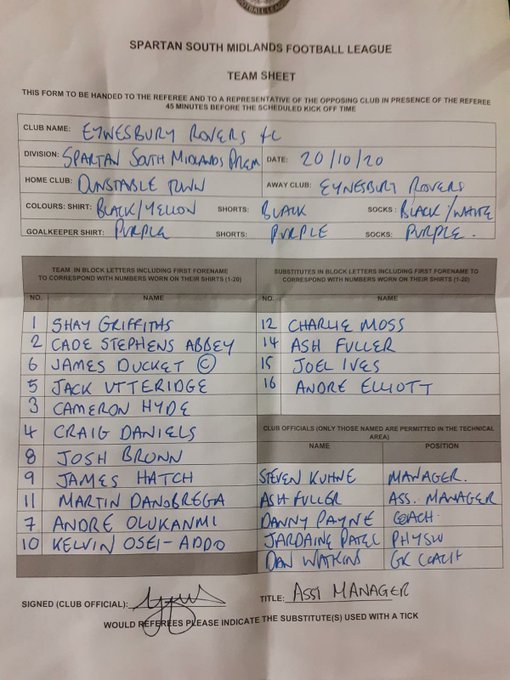 SPARTAN SOUTH MIDLANDS FOOTBALL LEAGUE
TEAM SHEET
THIS FORM TO BE HANDED TO THE REFEREE AND TO A REPRESENTATIVE OF THE OPPOSING CLUB IN PRESENCE OF THE REFEREE
45 MINUTES BEFORE THE SCHEDULED KICK OFF TIME
CLUB NAME: EYNESBURY ROVERS FC
DIVISION: SPARTAN SOUTH MIDLANDS PREM DATE: 20/10/20
HOME CLUB: DUNSTABLE TOWN AWAY CLUB: EYNESBURY ROVERS
COLOURS: SHIRT: BLACK/YELLOW SHORTS: BLACK SOCKS: BLACK/WHITE
GOALKEEPER SHIRT: PURPLE SHORTS: PURPLE SOCKS: PURPLE.
TEAM IN BLOCK LETTERS INCLUDING FIRST FORENAME
TO CORRESPOND WITH NUMBERS WORN ON THEIR SHIRTS (1-20)
NO. NAME
1 SHAY GRIFFITHS
2 CADE STEPHENS ABBEY
6 JAMES DUCKET ©
5 JACK UTTERIDGE
3 CAMERON HYDE
4 CRAIG DANIELS
8 JOSH BRONN
9 JAMES HATCH
11 MARTIN DANOBREGA
7 ANDRÉ OLUKANMI
10 KELVIN OSEI-ADDO
SUBSTITUTES IN BLOCK LETTERS INCLUDING FIRST FORENAME TO
CORRESPOND WITH NUMBERS WORN ON THEIR SHIRTS (1-20)
NO. NAME
12 CHARLIE MOSS
14 ASH FULLER
15 JOEL IVES
16 ANDRÉ ELLIOTT
CLUB OFFICIALS (ONLY THOSE NAMED ARE PERMITTED IN THE TECHNICAL
AREA)
NAME POSITION
STEVEN KUHNE MANAGER.
ASH FULLER ASS. MANAGER
DANNY PAYNE COACH
JARDAINE PATEL PHYSIO
DAN WATKINS GK COACH
SIGNED (CLUB OFFICIAL): TITLE: ASST MANAGER
WOULD REFEREES PLEASE INDICATE THE SUBSTITUTE(S) USED WITH A TICK